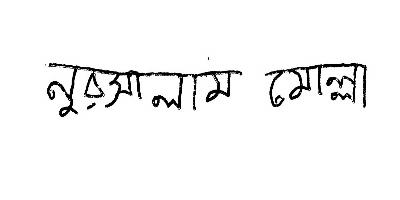 নুরআলাম মোল্লা